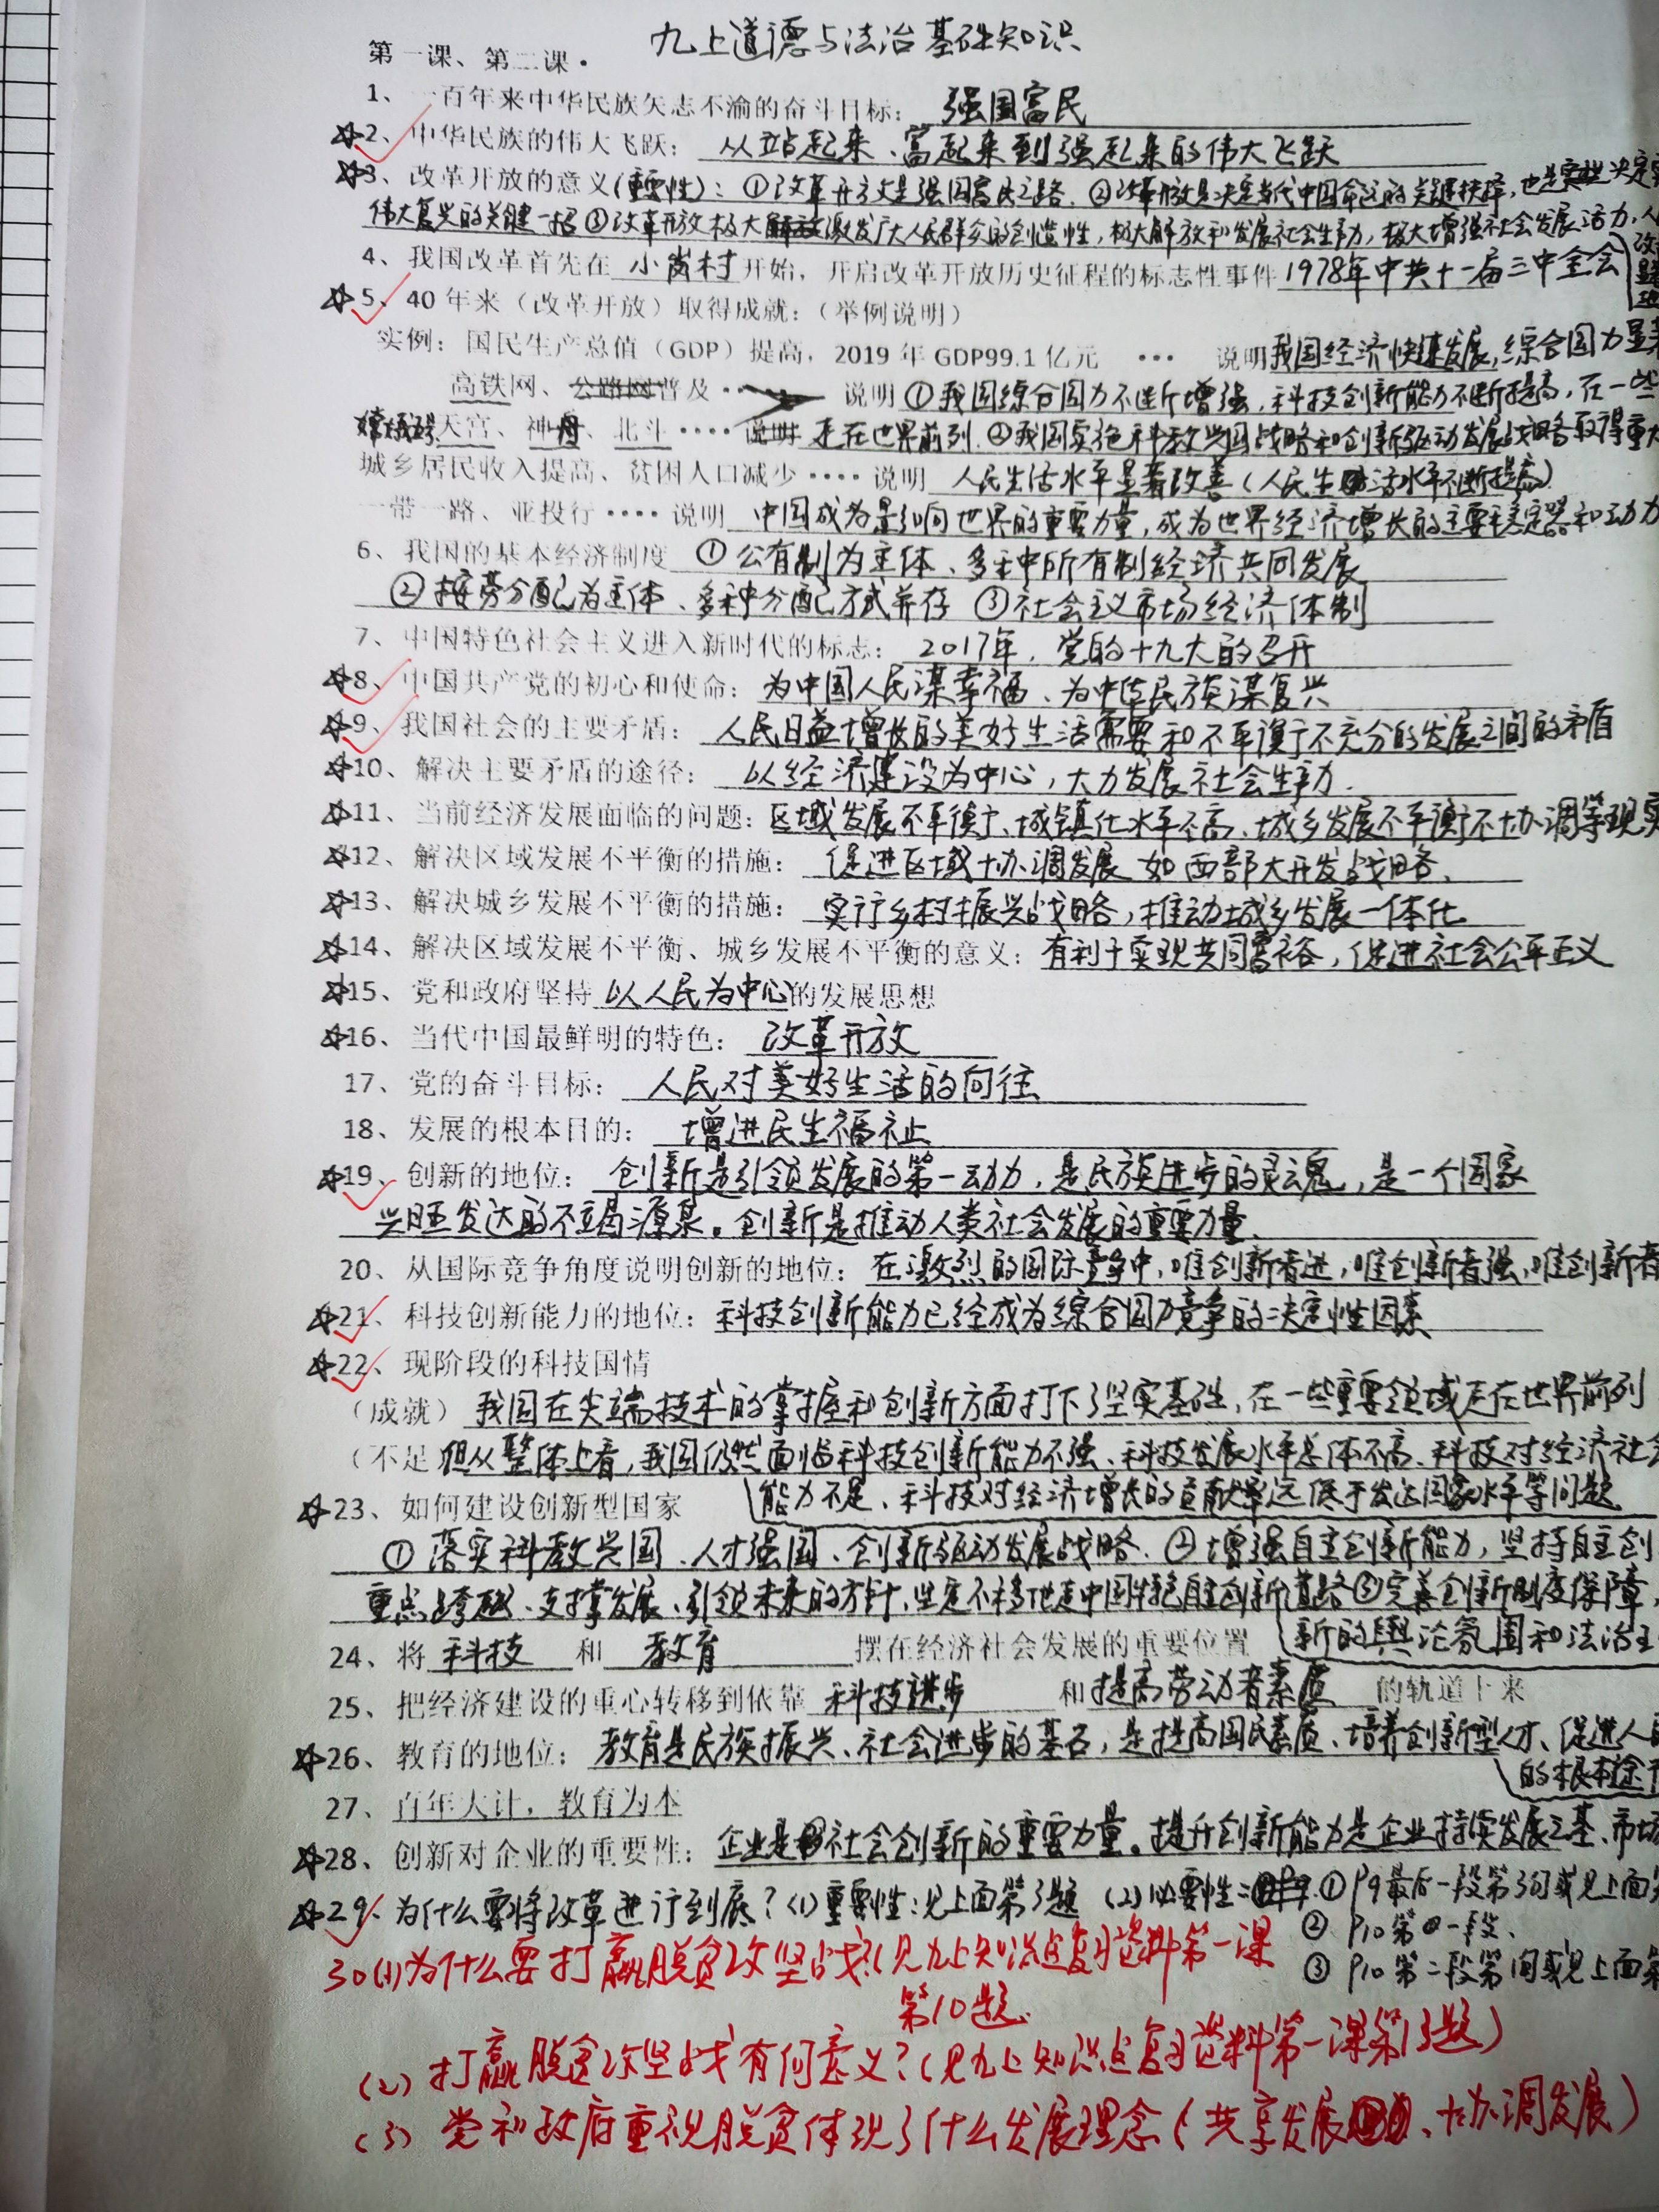 九上道德与法治基础知识
第一课、第二课·
1、一百年来中华民族矢志不渝的奋斗目标：强国富民
☆2、中华民族的伟大飞跃：从站起来、富起来到强起来的伟大飞跃
☆3、改革开放的意义(重要性)：①改革开放是强国富民之路。②改革开放是决定当代中国命运的关键抉择，也是实现决定
伟大复兴的关键一招③改革开放极大激发广大人民群众的创造性，极大解放和发展社会生产力，极大增强社会发展活力，人
4、我国改革首先在小岗村开始，开启改革开放历史征程的标志性事件1978年中共十一届三中全会
☆5、40年来（改革开放）取得成就：（举例说明）
实例：国民生产总值（GDP）提高，2019年GDP99.1亿元 … 说明我国经济快速发展，综合国力显
高铁网、公路网普及…… 说明①我国综合国力不断增强，科技创新能力不断提高，在一些
嫦娥号天宫、神舟、北斗····说明 走在世界前列.②我国实施科教兴国战略和创新驱动发展战略取得重大
城乡居民收入提高、贫困人口减少····说明 人民生活水平显著改善（人民生活水平不断提高）
一带一路、亚投行····说明 中国成为影响世界的重要力量，成为世界经济增长的主要稳定器和动力
6、我国的基本经济制度 ①公有制为主体、多种所有制经济共同发展
②按劳分配为主体、多种分配方式并存 ③社会主义市场经济体制
7、中国特色社会主义进入新时代的标志：2017年，党的十九大的召开
☆8、中国共产党的初心和使命：为中国人民谋幸福、为中华民族谋复兴
☆9、我国社会的主要矛盾：人民日益增长的美好生活需要和不平衡不充分的发展之间的矛盾
☆10、解决主要矛盾的途径：以经济建设为中心，大力发展社会生产力.
☆11、当前经济发展面临的问题：区域发展不平衡、城镇化水平不高、城乡发展不平衡不协调等现实
☆12、解决区域发展不平衡的措施：促进区域协调发展 如西部大开发战略、
☆13、解决城乡发展不平衡的措施：实行乡村振兴战略，推动城乡发展一体化
☆14、解决区域发展不平衡、城乡发展不平衡的意义：有利于实现共同富裕，促进社会公平正义
☆15、党和政府坚持以人民为中心的发展思想
☆16、当代中国最鲜明的特色：改革开放
17、党的奋斗目标：人民对美好生活的向往
18、发展的根本目的：增进民生福祉
☆19、创新的地位：创新是引领发展的第一动力，是民族进步的灵魂，是一个国家
兴旺发达的不竭源泉。创新是推动人类社会发展的重要力量.
20、从国际竞争角度说明创新的地位：在激烈的国际竞争中，唯创新者进，唯创新者强，唯创新者
☆21、科技创新能力的地位：科技创新能力已经成为综合国力竞争的决定性因素
☆22、现阶段的科技国情
（成就）我国在尖端技术的掌握和创新方面打下了坚实基础，在一些重要领域走在世界前列
（不足 但从整体上看，我国仍然面临科技创新能力不强、科技发展水平总体不高、科技对经济社会
能力不足、科技对经济增长的贡献率远低于发达国家水平等问题
☆23、如何建设创新型国家
①落实科教兴国、人才强国、创新驱动发展战略.②增强自主创新能力，坚持自主创
重点跨越、支撑发展、引领未来的方针，坚定不移地走中国特色自主创新道路③完善创新制度保障，
新的舆论氛围和法治
24、将科技和教育摆在经济社会发展的重要位置
25、把经济建设的重心转移到依靠科技进步和提高劳动者素质的轨道上来
☆26、教育的地位：教育是民族振兴、社会进步的基石，是提高国民素质、培养创新型人才、促进人
的根本途
27、百年大计，教育为本
☆28、创新对企业的重要性：企业是社会创新的重要力量。提升创新能力是企业持续发展之基、市场
☆29、为什么要将改革进行到底？(1)重要性：见上面第3题 (2)必要性：①P9最后一段第3句或见上面
②P10第一段、
③P10第二段第1句或见上面第
30(1)为什么要打赢脱贫攻坚战？(见九上知识点复习资料第一课
第10题
(2)打赢脱贫攻坚战有何意义？(见九上知识点复习资料第一课第13题)
(3)党和政府重视脱贫体现了什么发展理念(共享发展、协调发展)